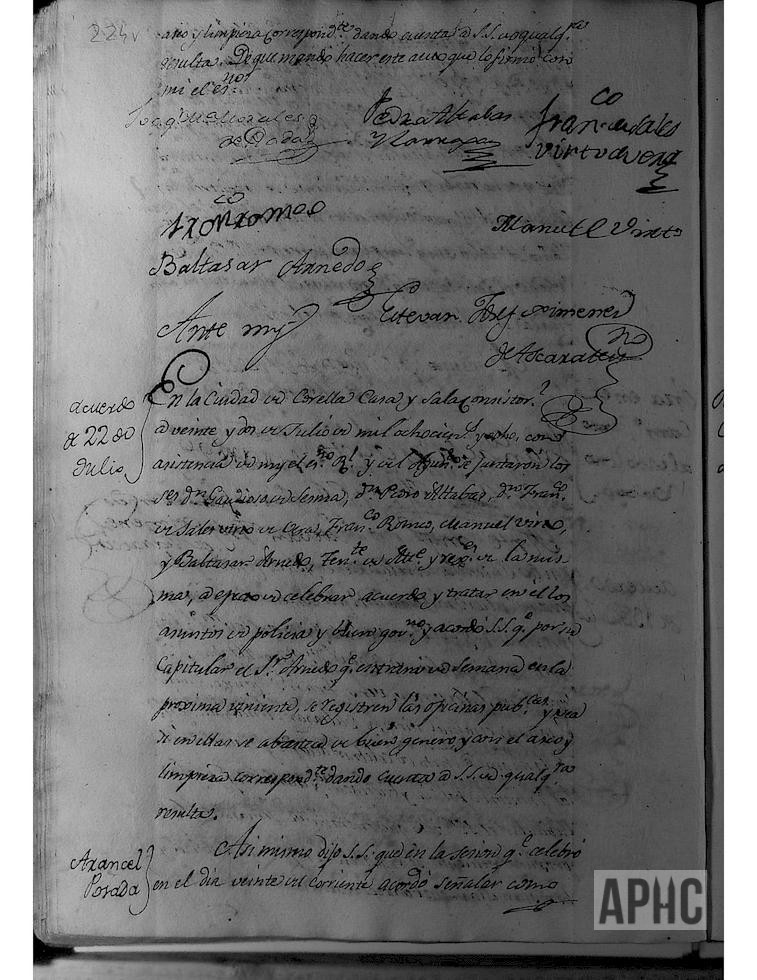 224v
aseo y limpieza correspond.te dando cuenta a S.S. de qualq.ra
resulta. De que mando hacer este auto que lo firmó con
mi el es.no
Joaq.n Morales
de Rada
Pedro Alcabar
y Lorroza
Fran.co de Sales
Virto de Vera
Fran.co Romeo
Manuel Virto
Baltasar Arnedo
Ante my
Estevan Josef Ximenez
de Ascarate
acuerdo
de 22 de
Julio
En la Ciudad de Corella Casa y Sala Consistor.l
a veinte y dos de Julio de mil ochocien.s y ocho, con
asistencia de my el es.no R.l y del Ayun.to se juntaron los
S.res d.n Gaudioso de Sesma, d.n Pedro Alcabar, d.n Fran.co
de Sales Virto de Vera, Fran.co Romeo, Manuel Virto,
y Baltasar Arnedo, Ten.te de Alc.e y rex.es de la mis
ma, a efecto de celebrar acuerdo y tratar en el los
asuntos de policia y buen gov.no y acordó S.S. q.e por su
Capitular el S.r Arnedo q.e entrará de Semana en la
proxima viniente, se registren las oficinas pub.cas y vea
si en ellas se abastece de buen genero y con el aseo y
limpieza correspond.te dando cuenta a S.S. de qualq.ra
resulta.
Asi mismo dijo S.S. que en la sesion q.e celebró
en el dia veinte del corriente acordó señalar como
Arancel
Posada
APHC